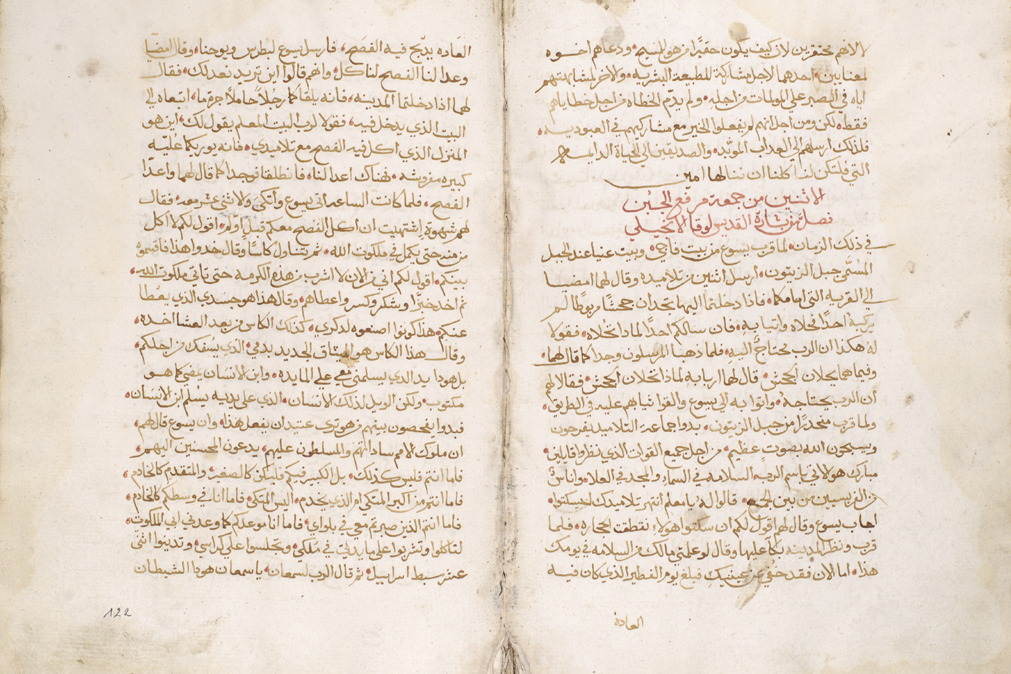 لانهم محتقرين لاز كيف يكون حقيرًا من هو للمسيح، ودعاهم اخوه
لمعنايين، احدهما لاجل مشاركته للطبيعه البشريه، والاخر لمشابهتهم
اياه في الصبر علي المولمات من اجله، ولم يذم الخطاه من اجل خطاياهم
فقط، لكن ومن اجل انهم لم يفعلوا الخير مع مشاركيهم في العبوديه،
فلذلك ارسلهم الي العداب الموبد، والصديقين الي الحياة الدايمه
التي فلتكن لنا كلنا ان ننالها امين
الاثنين من جمعة مرفع الجبن
فصل من بشارة القديس لوقا الانجيلي
في ذلك الزمان، لما قرب يسوع من بيت فاجي، وبيت عنيا عند الجبل
المسمى جبل الزيتون، ارسل اثنين من تلاميده وقال لهما امضيا
الى القريه التي امامكما، فاذا دخلتما اليها تجدان جحشًا مربوطًا لم
يركبهُ احدًا فحلاه واتيا بهِ، فان سالكم احدًا لماذا تحلاه، فقولا
لهُ هكذا ان الرب محتاج اليهِ، فلما ذهبا المرسلون وجدا كما قال لهما،
وفيما هما يحلان الجحش، قال لهما اربابه لماذا تحلان الجحش، فقالا لهم
ان الرب يحتاجه، واتوا به الي يسوع والقوا ثيابهم عليه في الطريق،
ولما قرب منحدرًا من جبل الزيتون، بدوا جماعة التلاميد يفرحون
ويسبحون الله بصوت عظيم، من اجل جميع القوات الذي نظروا قايلين
مبارك هو الاتي باسم الرب، السلامه في السماء والمجد في العلا، واناسٌ
من الفريسيين من بين الجمع، قالوا له يا معلم انتهر تلاميدك ليسكتوا،
اجاب يسوع وقال لهم اقول لكم ان سكتوا هولاء نطقت الحجاره، فلما
قرب ونظر المدينه بكا عليها وقال لو علمتي مالك من السلامه في يومك
هذا، اما الان فقد خفي عن عينيك، فبلغ يوم الفطير الذي كان فيه
العادة
العاده يدبح فيه الفصح، فارسل يسوع لبطرس ويوحنا، وقال امضيا
وعدا لنا الفصح لناكل، وانهم قالوا اين تريد نعد لك، فقال
لهما اذا دخلتما المدينه، فانه يلقاكما رجلًا حاملًا جرة ما، اتبعاه الي
البيت الذي يدخل فيه، فقولا لرب البيت المعلم يقول لك، اين هو
المنزل الذي اكل فيه الفصح مع تلاميدي، فانه يوريكما عليّه
كبيره مفروشه، هناك اعدا لنا، فانطلقا فوجدا كما قال لهما واعدًا
الفصح، فلما كانت الساعه اتي يسوع واتكي والاثني عشر معه، فقال
لهم شهوة اشتهيت ان اكل الفصح معكم قبل آلامي، اقول لكم لا اكل
منه حتى يكمل في ملكوت الله، ثم تناول كاسًا وقال خدوا هذا فاقسموه
بينكم، اقول لكم اني من الان لا اشرب من هذه الكرمه حتى تاتي ملكوت الله،
ثم اخد خبزًا وشكر وكسر واعطاهم، وقال هذا هو جسدي الذي يعطا
عنكم، هذا كونوا اصنعوه لدكري، كذلك الكاس من بعد العشا اخده،
وقال هذا الكاس هو الميثاق الجديد بدمي، الذي يسفك من اجلكم،
بل هودا يد الذي يسلمني معي علي المايده، وابن الانسان يمضي كما هو
مكتوب، ولكن الويل لذلك الانسان، الذي علي يديه يسلم ابن الانسان،
فبدوا يفحصون بينهم من هو تري عتيد ان يفعل هذا، وان يسوع قال لهم
ان ملوك الامم ساداتهم والمسلطون عليهم، يدعون المحسنين اليهم،
فاما انتم فليس كذلك، بل الكبير فيكم فليكن كالصغير، والمتقدم كالخادم،
فاما انتم من اكبر المتكي ام الذي يخدم، اليس المتكي، فاما انا في وسطكم كالخادم،
فاما انتم الذين صبرتم معي في بلواي، فاما انا موعدكم كما وعدني ابي الملكوت،
لتاكلوا وتشربوا علي مايدتي في ملكي، وتجلسوا علي كراسي، وتدينوا اثني
عشر سبط اسراييل، ثم قال الرب لسمعان، يا سمعان هودا الشيطان
122